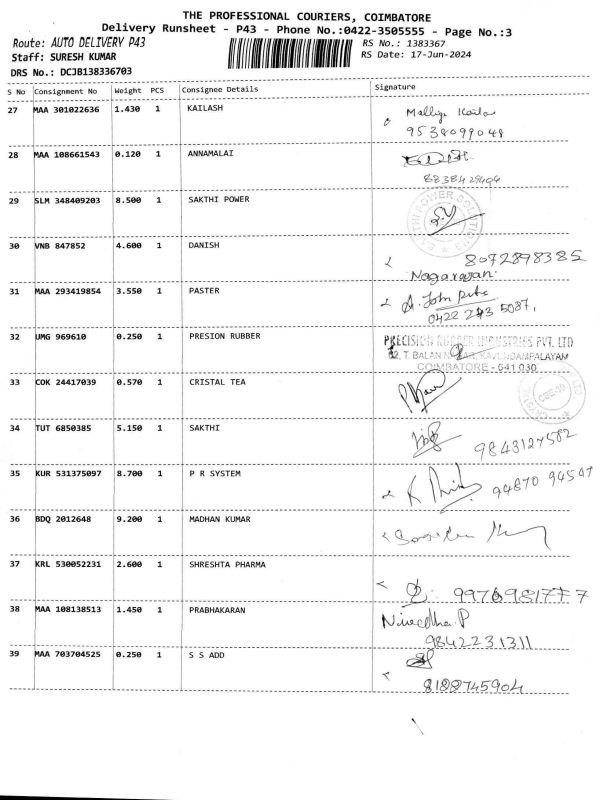 THE PROFESSIONAL COURIERS, COIMBATORE
Delivery Runsheet - P43 - Phone No.:0422-3505555 - Page No.:3
Route: AUTO DELIVERY P43 RS No.: 1383367
Staff: SURESH KUMAR RS Date: 17-Jun-2024
DRS No.: DCJB138336703
S No Consignment No Weight PCS Consignee Details Signature
27 MAA 301022636 1.430 1 KAILASH
9538099048
28 MAA 108661543 0.120 1 ANNAMALAI
29 SLM 348409203 8.500 1 SAKTHI POWER
30 VNB 847852 4.600 1 DANISH 8072898385
Nagarajan
31 MAA 293419854 3.550 1 PASTER
0422 243 5087,
32 UMG 969610 0.250 1 PRESION RUBBER PRECISION RUBBER INDUSTRIES PVT. LTD
COIMBATORE - 641 030
33 COK 24417039 0.570 1 CRISTAL TEA
34 TUT 6850385 5.150 1 SAKTHI 9843127582
35 KUR 531375097 8.700 1 P R SYSTEM
36 BDQ 2012648 9.200 1 MADHAN KUMAR
37 KRL 530052231 2.600 1 SHRESHTA PHARMA
9976981777
38 MAA 108138513 1.450 1 PRABHAKARAN Nivedha P
9842231311
39 MAA 703704525 0.250 1 S S ADD
8188745904